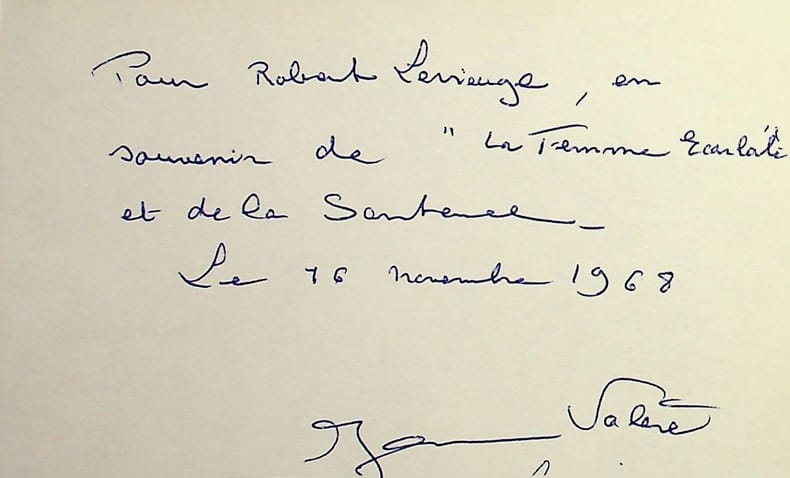 Pour Robert Levieuge, en
souvenir de " La Femme Ecarlate
et de la Sentence_
Le 16 novembre 1968
Jean Valère